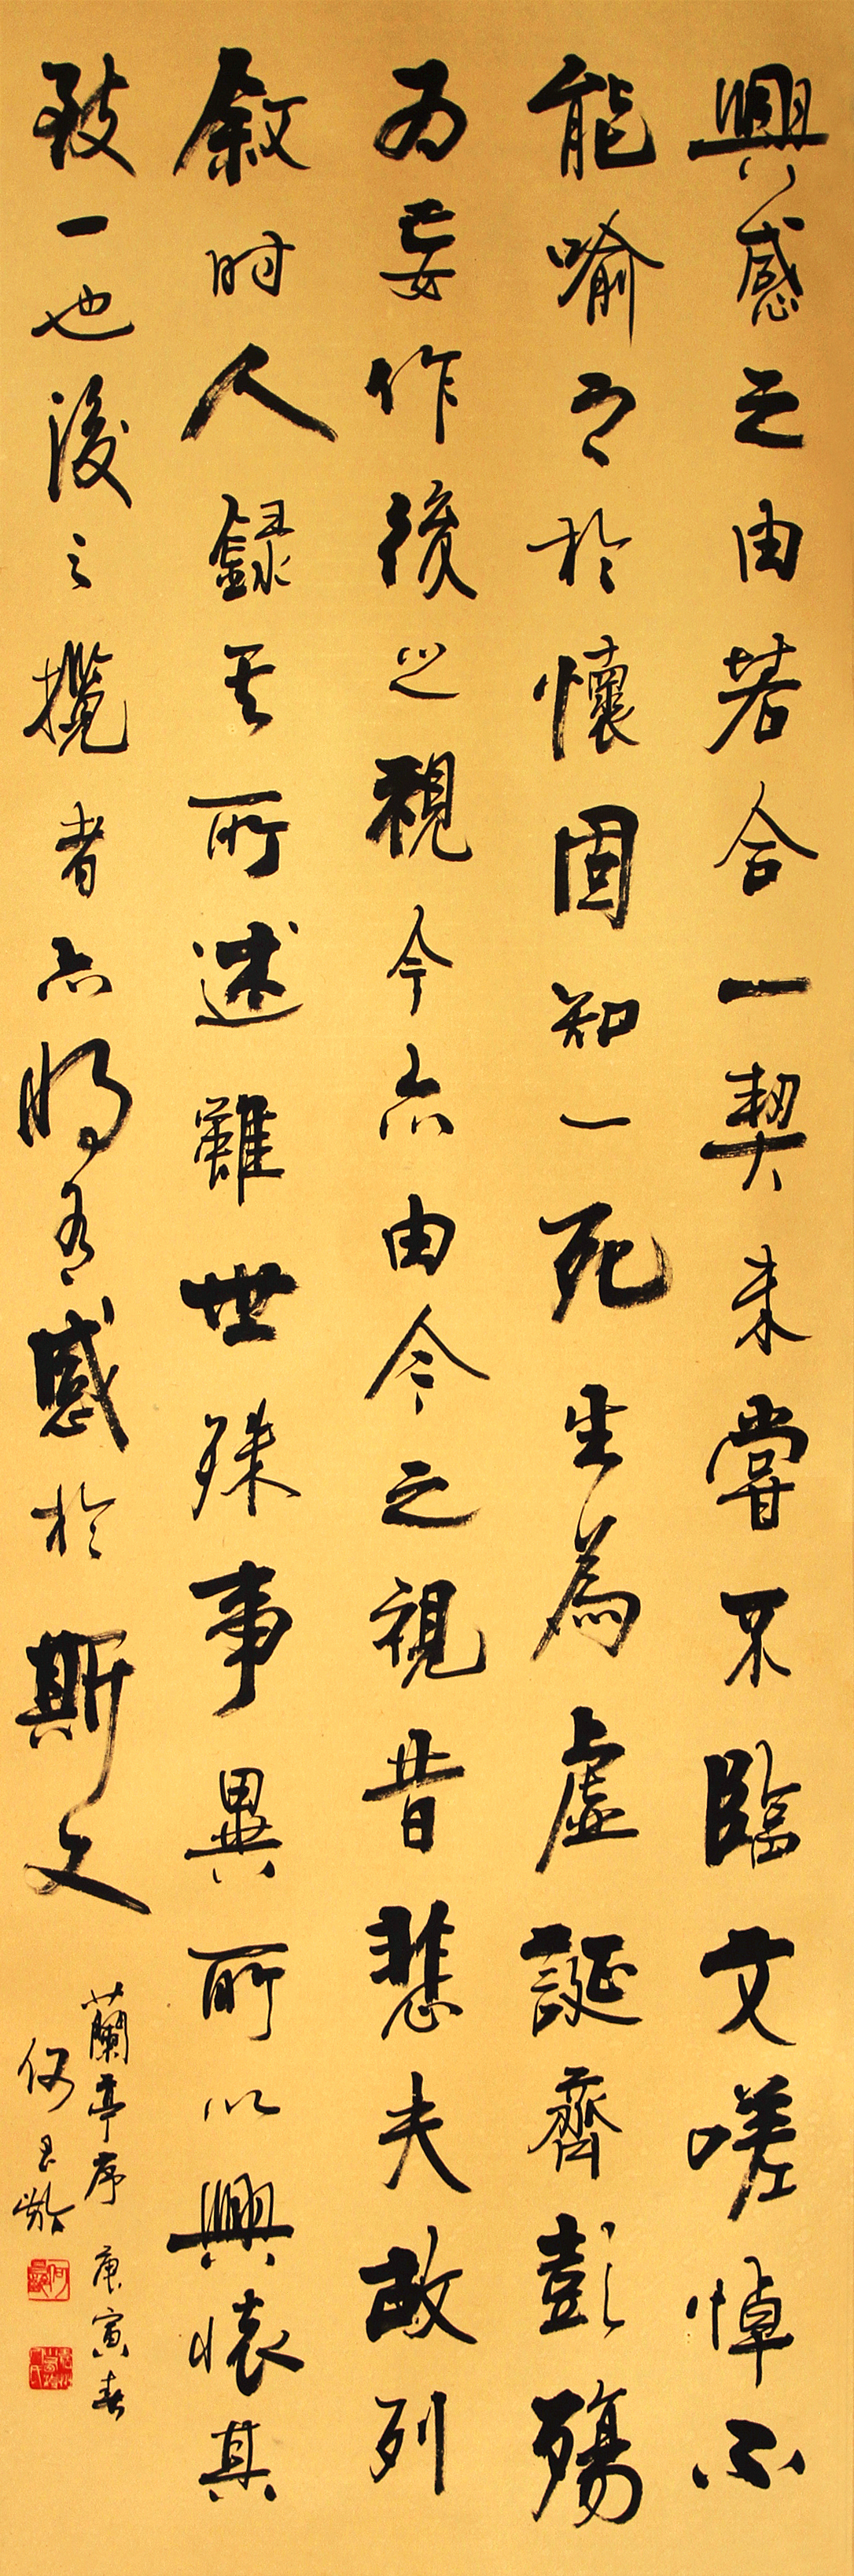 興感之由若合一契未嘗不臨文嗟悼不
能喻之於懷固知一死生為虛誕齊彭殤
为妄作後之視今亦由今之視昔悲夫故列
敘时人録其所述雖世殊事異所以興懷其
致一也後之攬者亦將有感於斯文
蘭亭序 庚寅春
何 齡